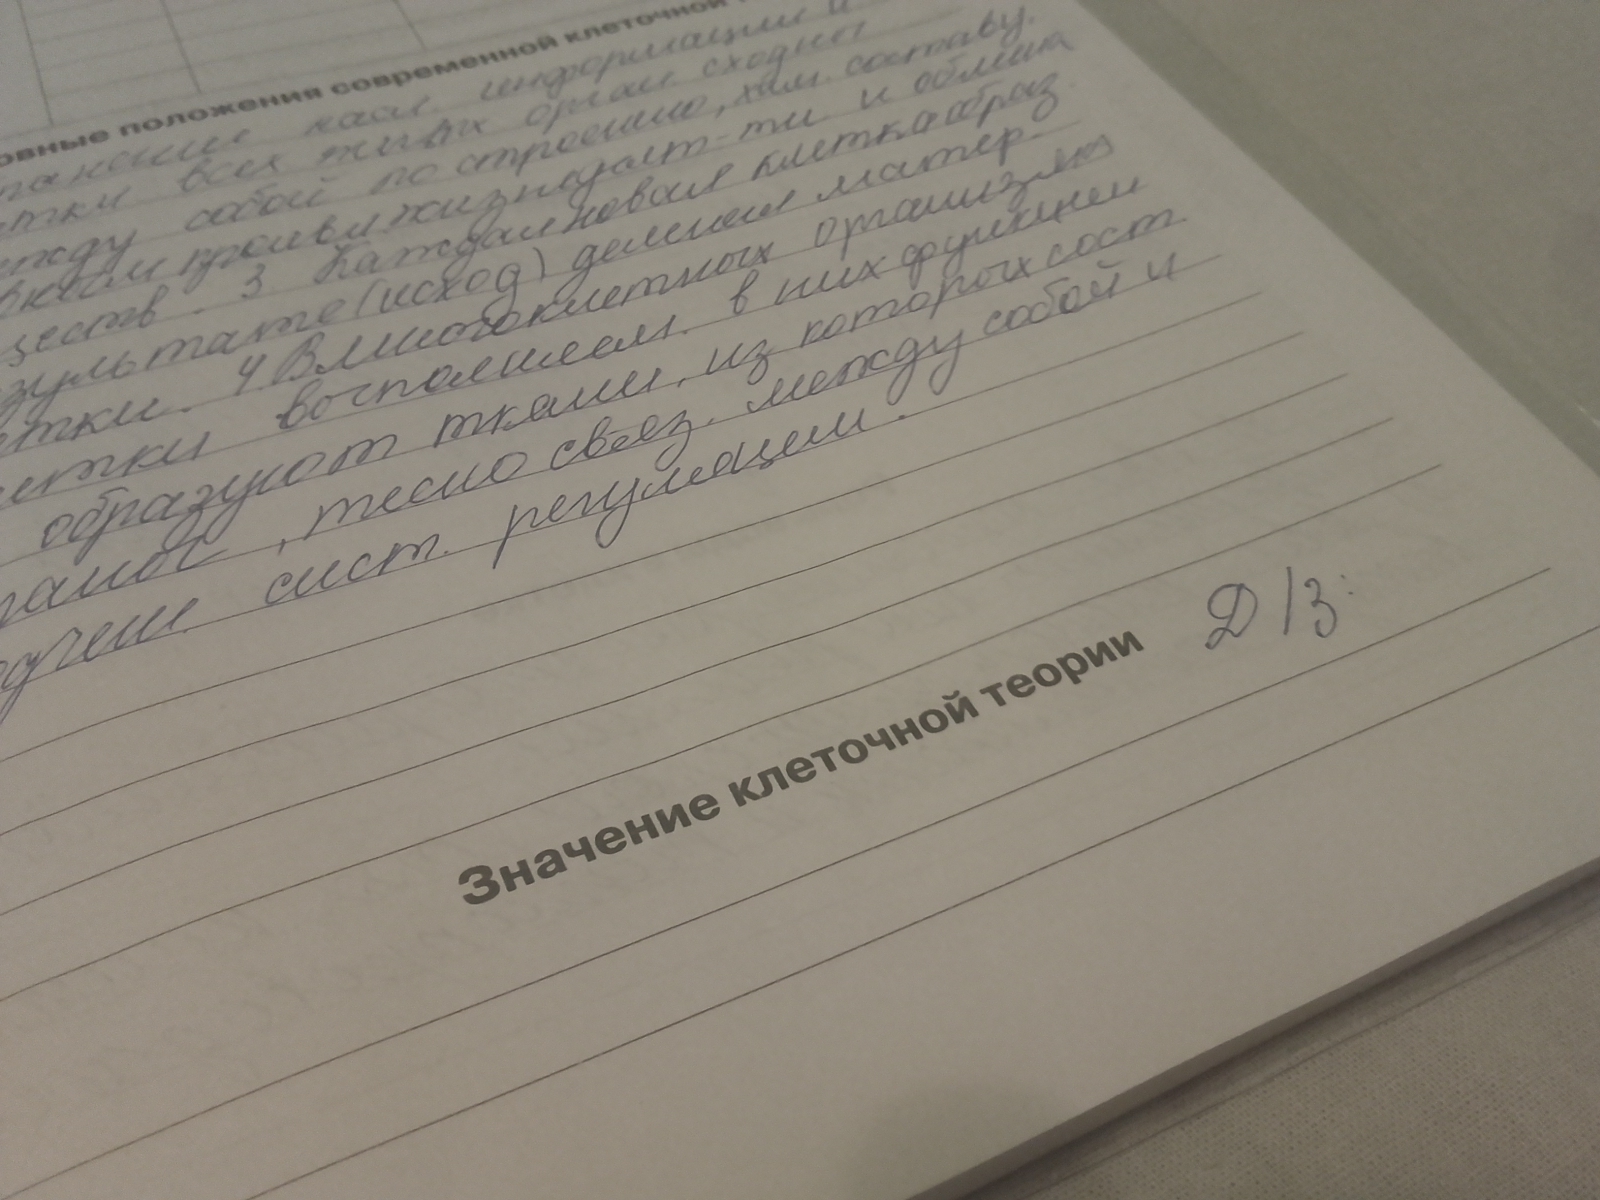 овные положения современной клеточной
насл. информации и
етки всех живых орган. сходны
ежду собой по строению, хим. составу,
проявл. жизнедеят-ти и обмена
ществ. 3 Каждая новая клетка образ.
зультате (исход) деления матер-
етки. 4 В многоклеточных организмах
етки восполняем. в них функции
образуют ткани, из которых сост.
, тесно связ. между собой и
сист. регуляции.
Значение клеточной теории Д/З: